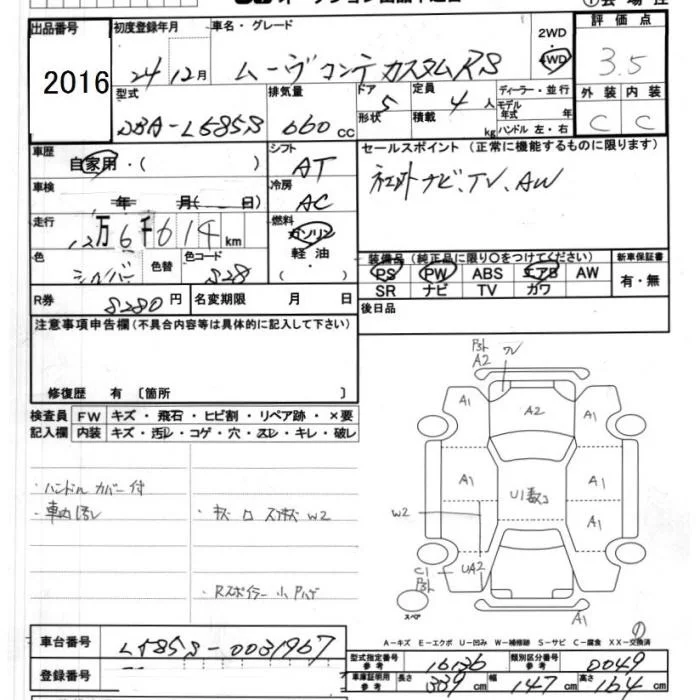 出品番号 初度登録年月 車名・グレード 2WD 4WD 評価点
2016 24年12月 ムーヴコンテカスタムRS 3.5
型式 排気量 ドア 5 定員 4人 ディーラー・並行 外装 内装
DBA-L585S 660cc 形状 積載 kg モデル年式 年 ハンドル 左・右 C C
車歴 自家用・( ) シフト AT セールスポイント (正常に機能するものに限ります)
車検 年 月( 日) 冷房 AC 社外ナビ、TV、AW
走行 12万6千614km 燃料 ガソリン
色 シルバー 色替 色コード S28 軽油・( )
装備品 (純正品に限り〇をつけてください) 新車保証書
PS PW ABS エアB AW 有・無
SR ナビ TV カワ
R券 8280円 名変期限 月 日 後日品
注意事項申告欄 (不具合内容等は具体的に記入して下さい)
修復歴 有 〔箇所 〕
検査員 FW キズ・飛石・ヒビ割・リペア跡・×要
記入欄 内装 キズ・汚レ・コゲ・穴・スレ・キレ・破レ
・ハンドルカバー付
・車内汚レ
・Rスポイラー小
A2 ワレ
A1 A2 A1
A1 U1数コ A1
W2 A1
C1 UA2
スペア A1
A-キズ E-エクボ U-凹み W-補修跡 S-サビ C-腐食 XX-交換済
車台番号 L585S-0031967
登録番号
型式指定番号 参考 16136 類別区分番号 参考 0049
車庫証明用 参考 長さ 339cm 幅 147cm 高さ 164cm